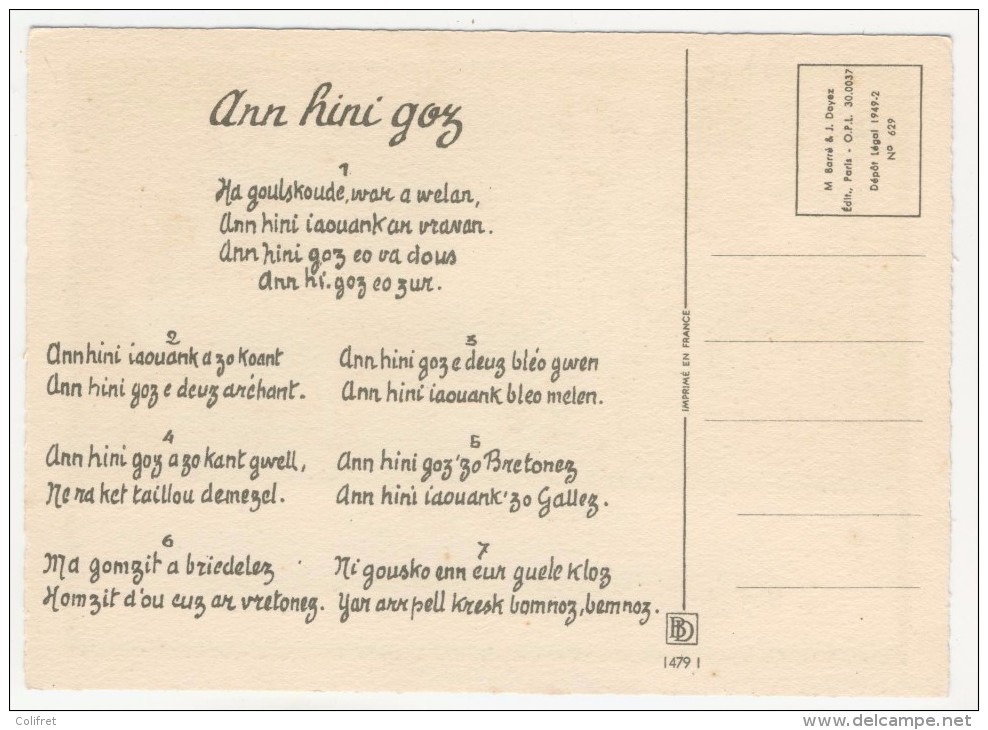 Ann hini goz
1
Ha goulskoude, war a welan,
Ann hini iaouank an vravan.
Ann hini goz eo va dous
Ann hi. goz eo zur.
2
Ann hini iaouank a zo koant
Ann hini goz e deuz aréhant.
3
Ann hini goz e deuz bléo gwen
Ann hini iaouank bleo melen.
4
Ann hini goz a zo kant gwell,
Ne ra ket taillou demezel.
5
Ann hini goz'zo Bretonez
Ann hini iaouank'zo Gallez.
6
Ma gomzit a briedelez
Homzit d'ou euz ar vretonez.
7
Ni gousko enn eur guele kloz
Yar arr pell kresk bomnoz, bemnoz.
IMPRIMÉ EN FRANCE
M Barré & J. Dayez
Édit., Paris - O.P.L. 30.0037
Dépôt Légal 1949-2
Nº 629
BD
14791
Colifret
http://www.delcampe.net